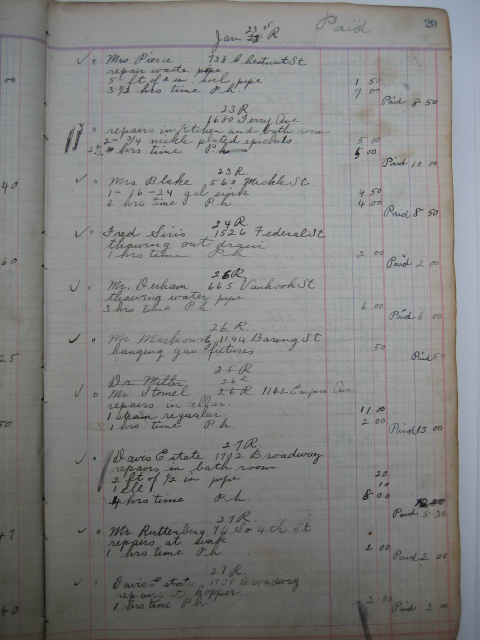 Paid
29
Jan 23 R
Mrs. Pierce 738 Chestnut St
repair waste pipe
5 ft of 2 in soil pipe 1 50
3 1/2 hrs time P.h. 7 00
Paid 8 50
23 R
1680 Ferry Ave
repairs in kitchen and bath room
2 - 3/4 nickle plated 5 00
hrs time P.h. 5 00
Paid 10 00
23 R.
Mrs. Blake 560 Mickle St
1 - 16 - 24 gal sink 4 50
2 hrs time P.h. 4 00
Paid 8 50
24 R.
Fred 1526 Federal St
thawing out drain
1 hrs time P.h. 2 00
Paid 2 00
26 R
Mr. Derham 665 Vanhook St
thawing water pipe
3 hrs time P.h 6 00
Paid 6 00
26. R.
Mr. 1194 Baring St
hanging gas fixtures 50
Paid 50
25 R
Dr. Miller 26 R
Mr. Stomel 26 R. 1142 Ave
repairs in cellar. 11 00
1 regular.
1 hrs. time P.h. 2 00
Paid 13 00
27 R.
Davis Estate 1702 Broadway
repairs in bath room
2 ft of 1/2 in pipe 20
1 ell 10
4 hrs time P.h 8 00
Paid 8 30
27 R.
Mr. Ruttenberg 74 So 4th St
repairs at sink
1 hrs time P.h 2 00
Paid 2 00
27 R.
Davis Estate 1702 Broadway
repairs at hopper
1 hrs time P.h. 2 00
Paid 2 00
00
40
60
25
50
47
40